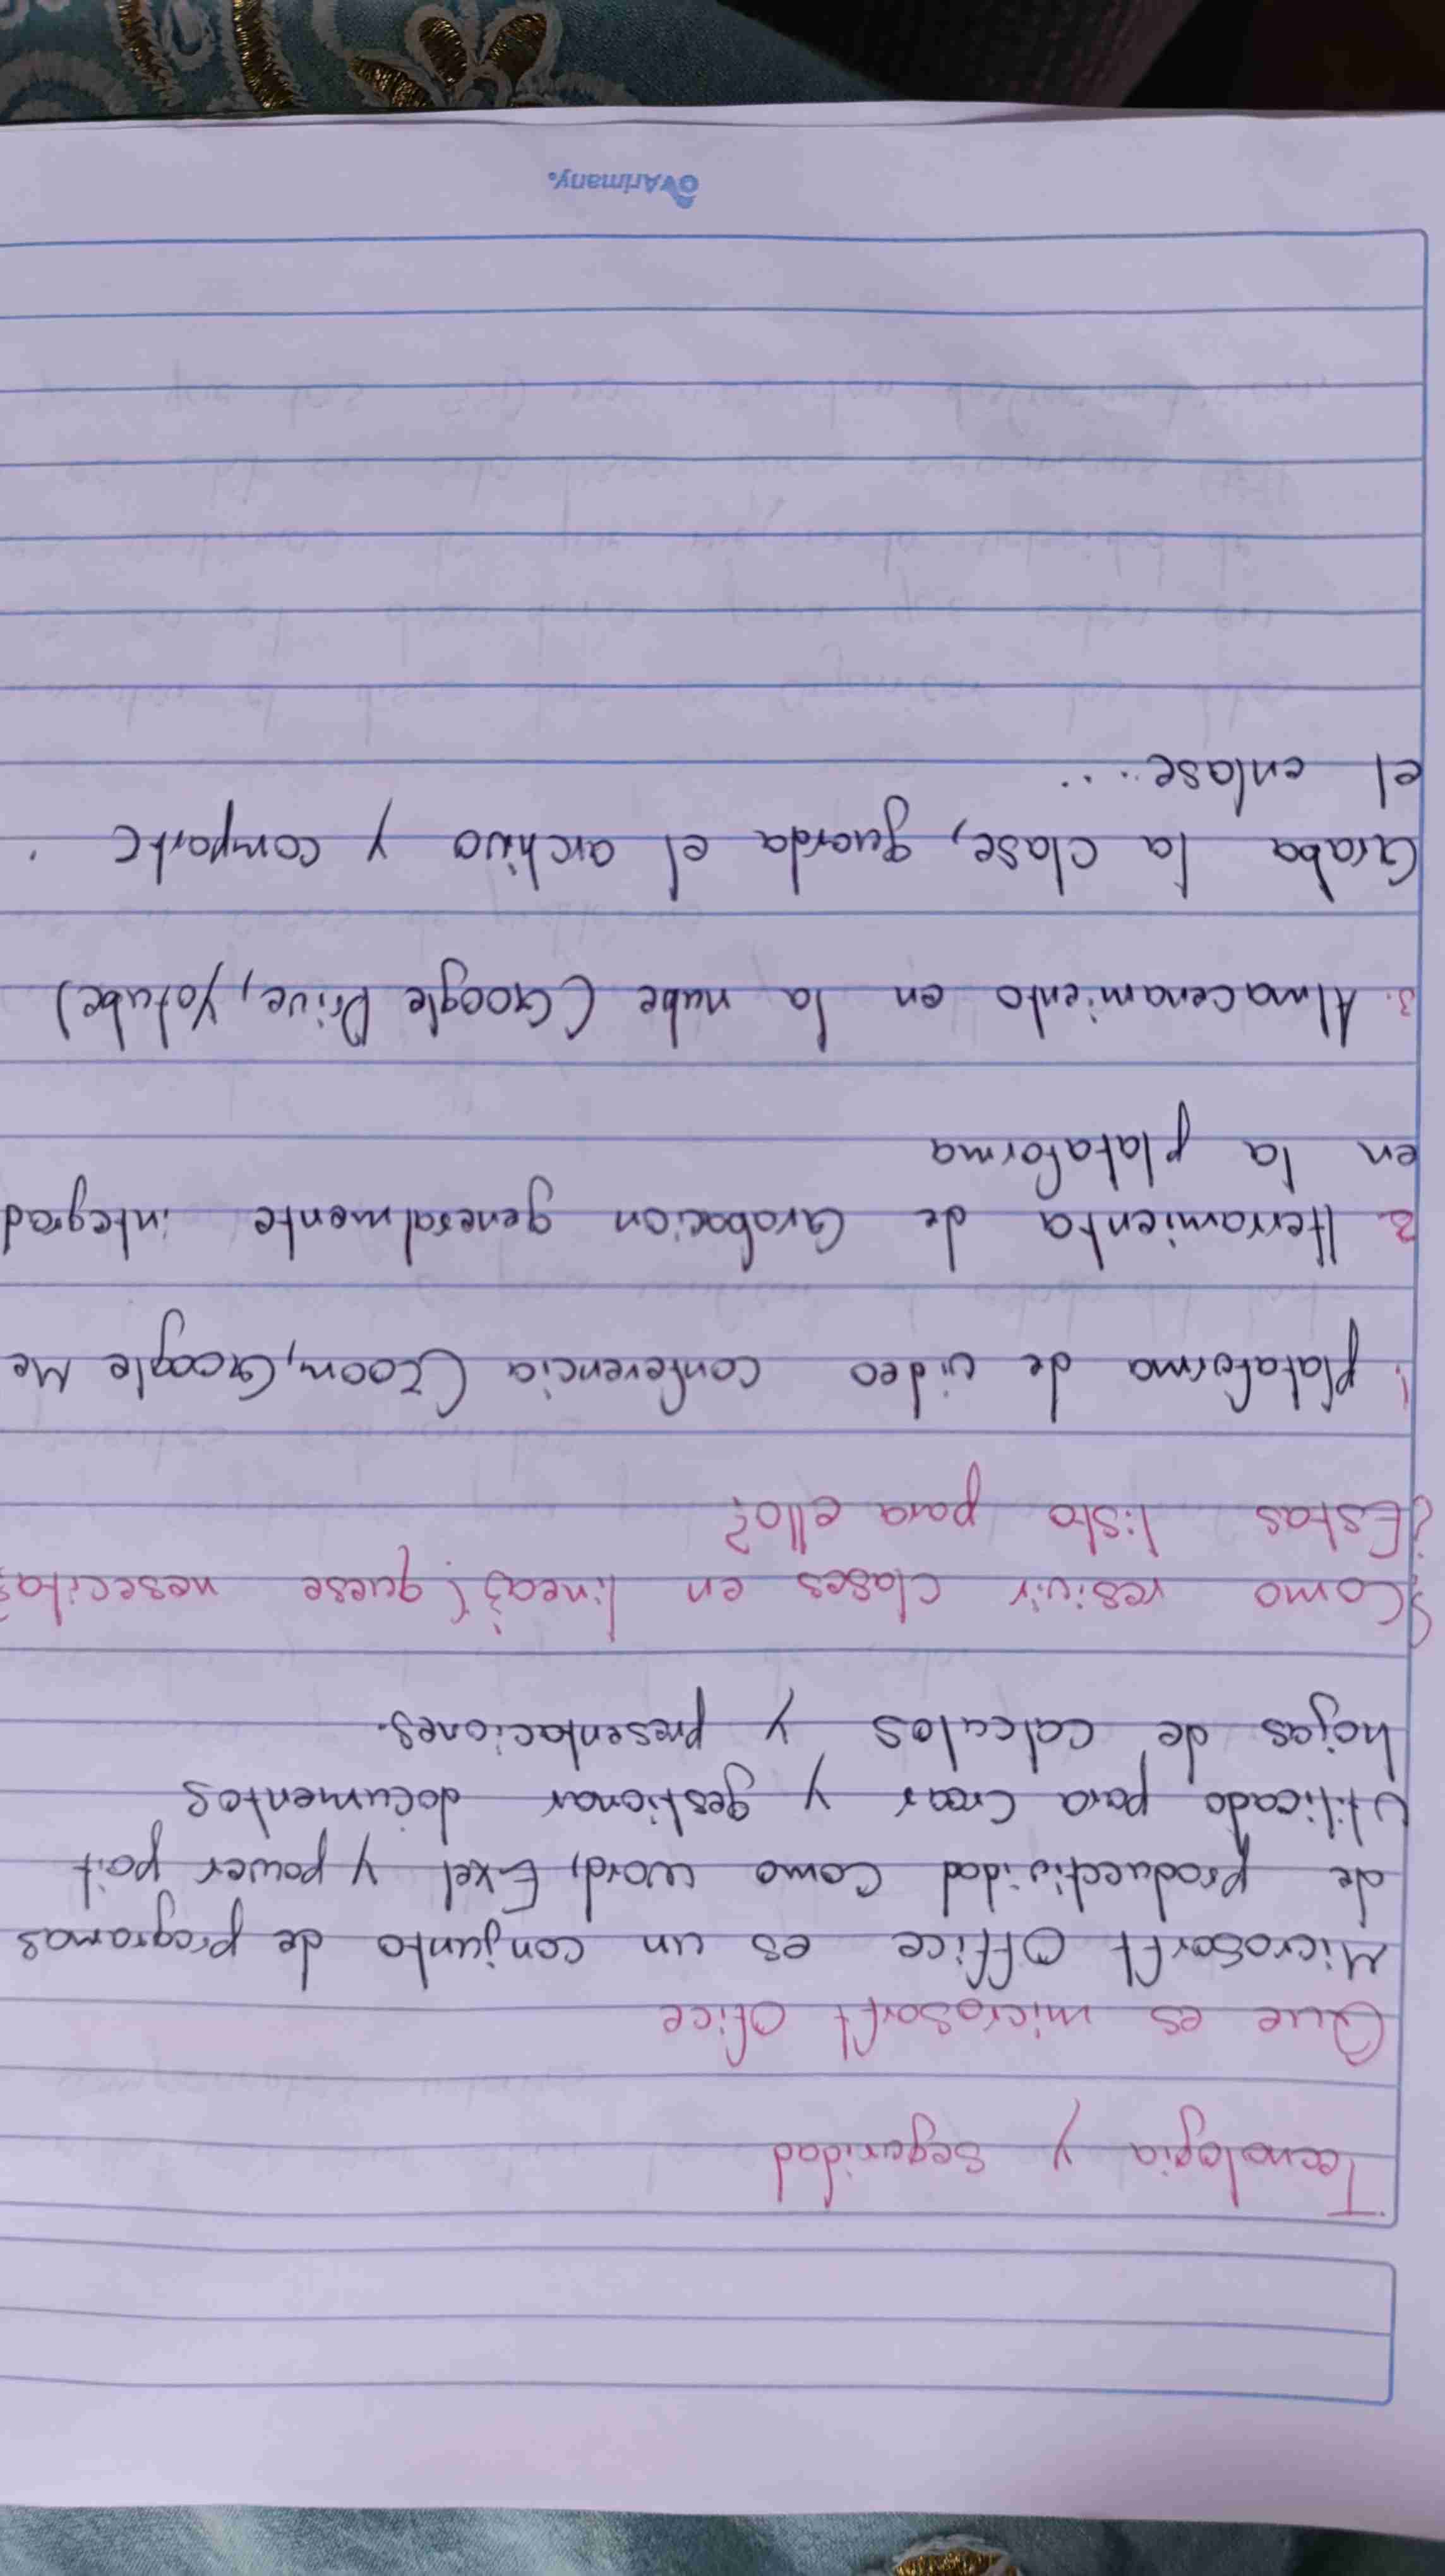 Tecnologia y seguridad
Que es microsorft ofice
Microsorft Office es un conjunto de programas
de productividad como word, Exel y power poit
Utilicado para crear y gestionar documentos
hojas de calculos y presentaciones.
¿Como resivir clases en linea? ¿quese nesecita?
¿Estas listo para ello?
1. plataforma de video conferencia (Zoom, Google Me
2. Herramienta de Grabacion generalmente integrad
en la plataforma
3. Almacenamiento en la nube (Google Drive, Yotube)
Graba la clase, guarda el archivo y comparte
el enlase...
Arimany.